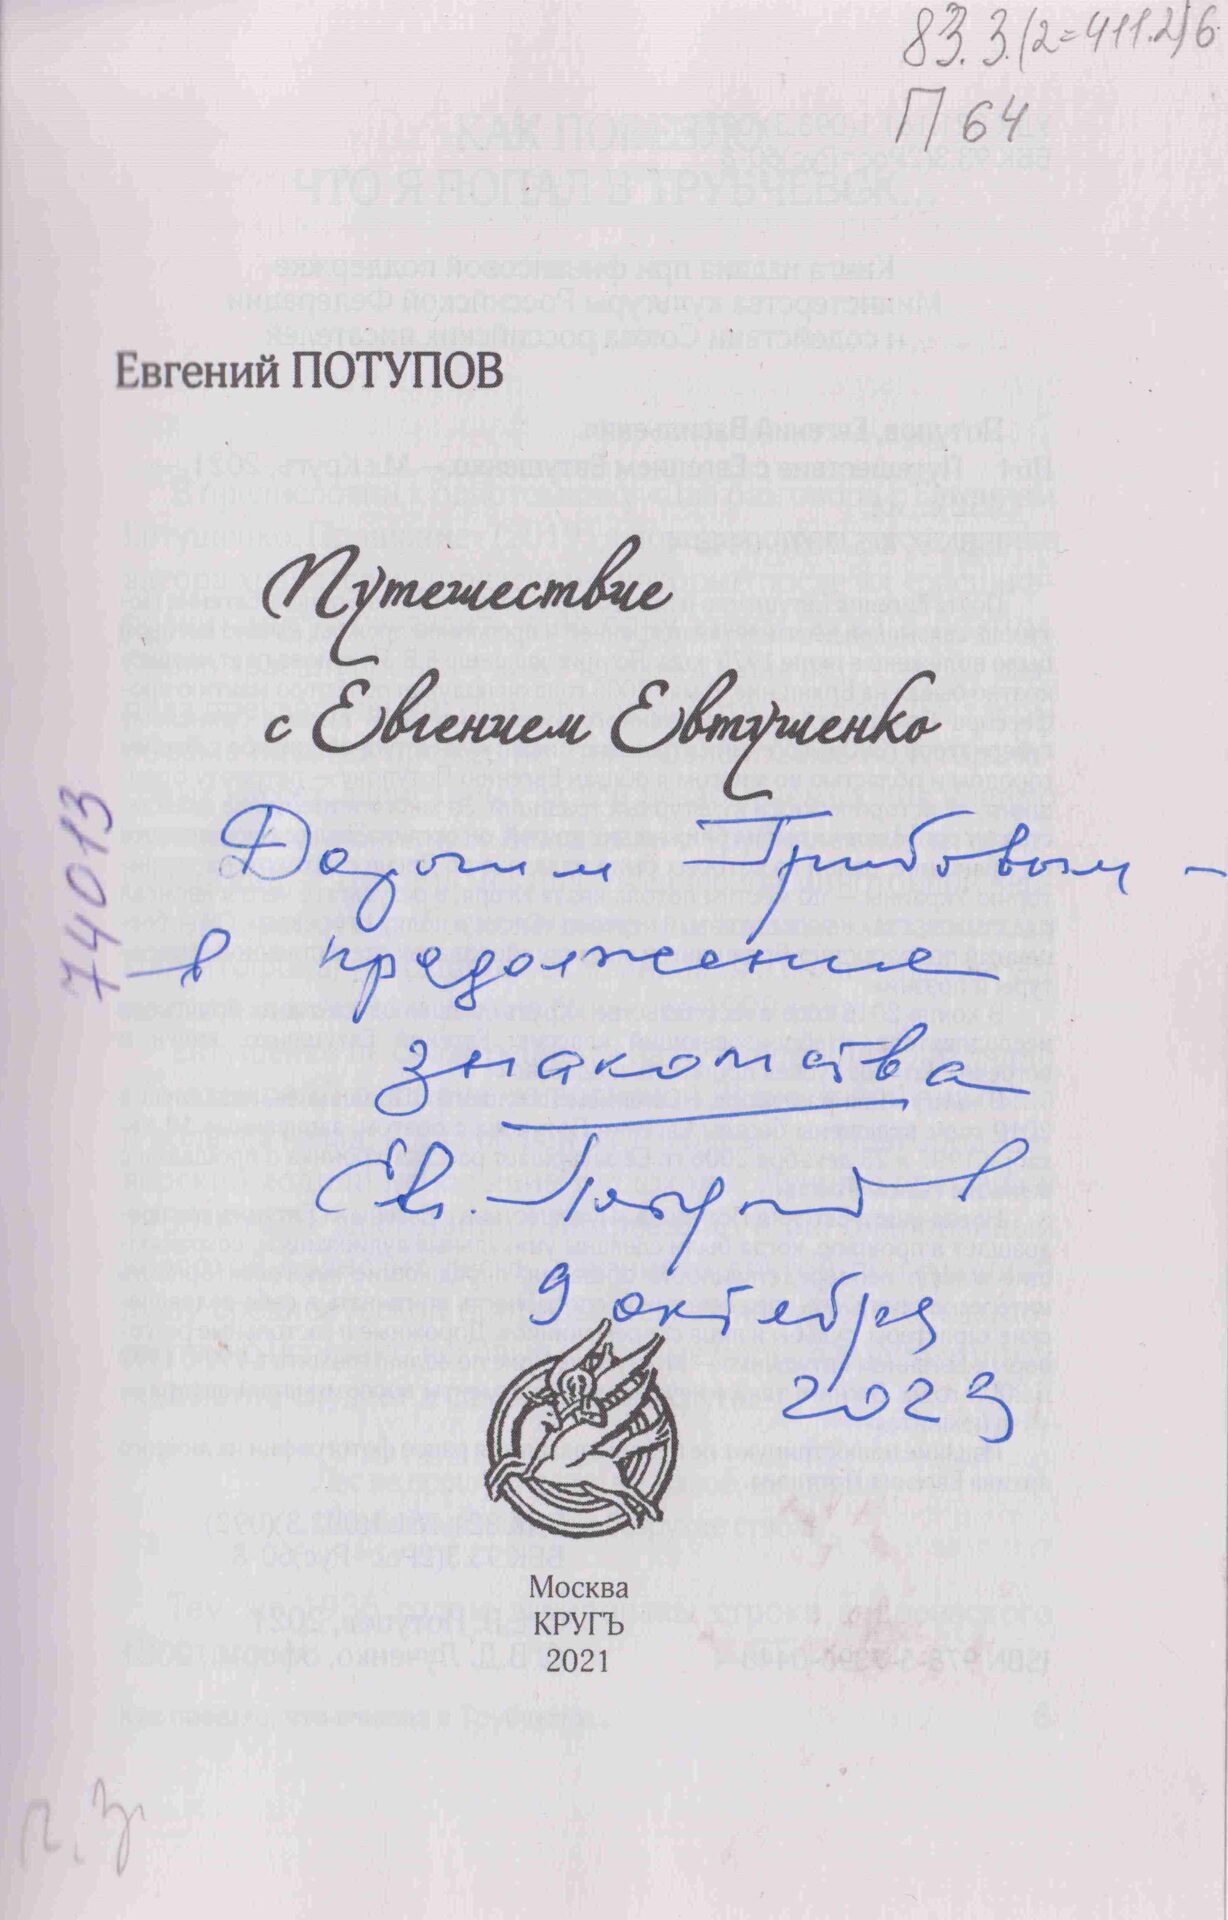 83.3.(2=411.2)6
П 64
Евгений ПОТУПОВ
Путешествие
с Евгением Евтушенко
74013
Дорогим Грибовым –
в продолжение
знакомства
Евг. Потупов
9 октября
2023
Москва
КРУГЪ
2021
п. з.